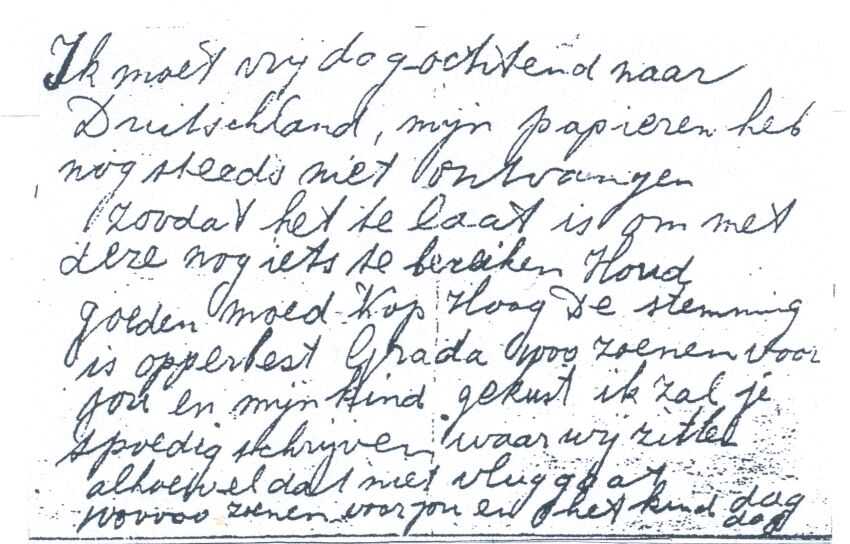 Ik moet vrijdag-ochtend naar
Druitschland, mijn papieren heb
nog steeds niet ontvangen
zoodat het te laat is om met
deze nog iets te bereiken Houd
goeden moed Kop Hoog De stemming
is opperbest Grada 1000 zoenen voor
jou en mijn kind gekust ik zal je
spoedig schrijven waar wij zitten
alhoewel dat niet vlug gaat
1000000 zoenen voor jou en het kind dag
dag